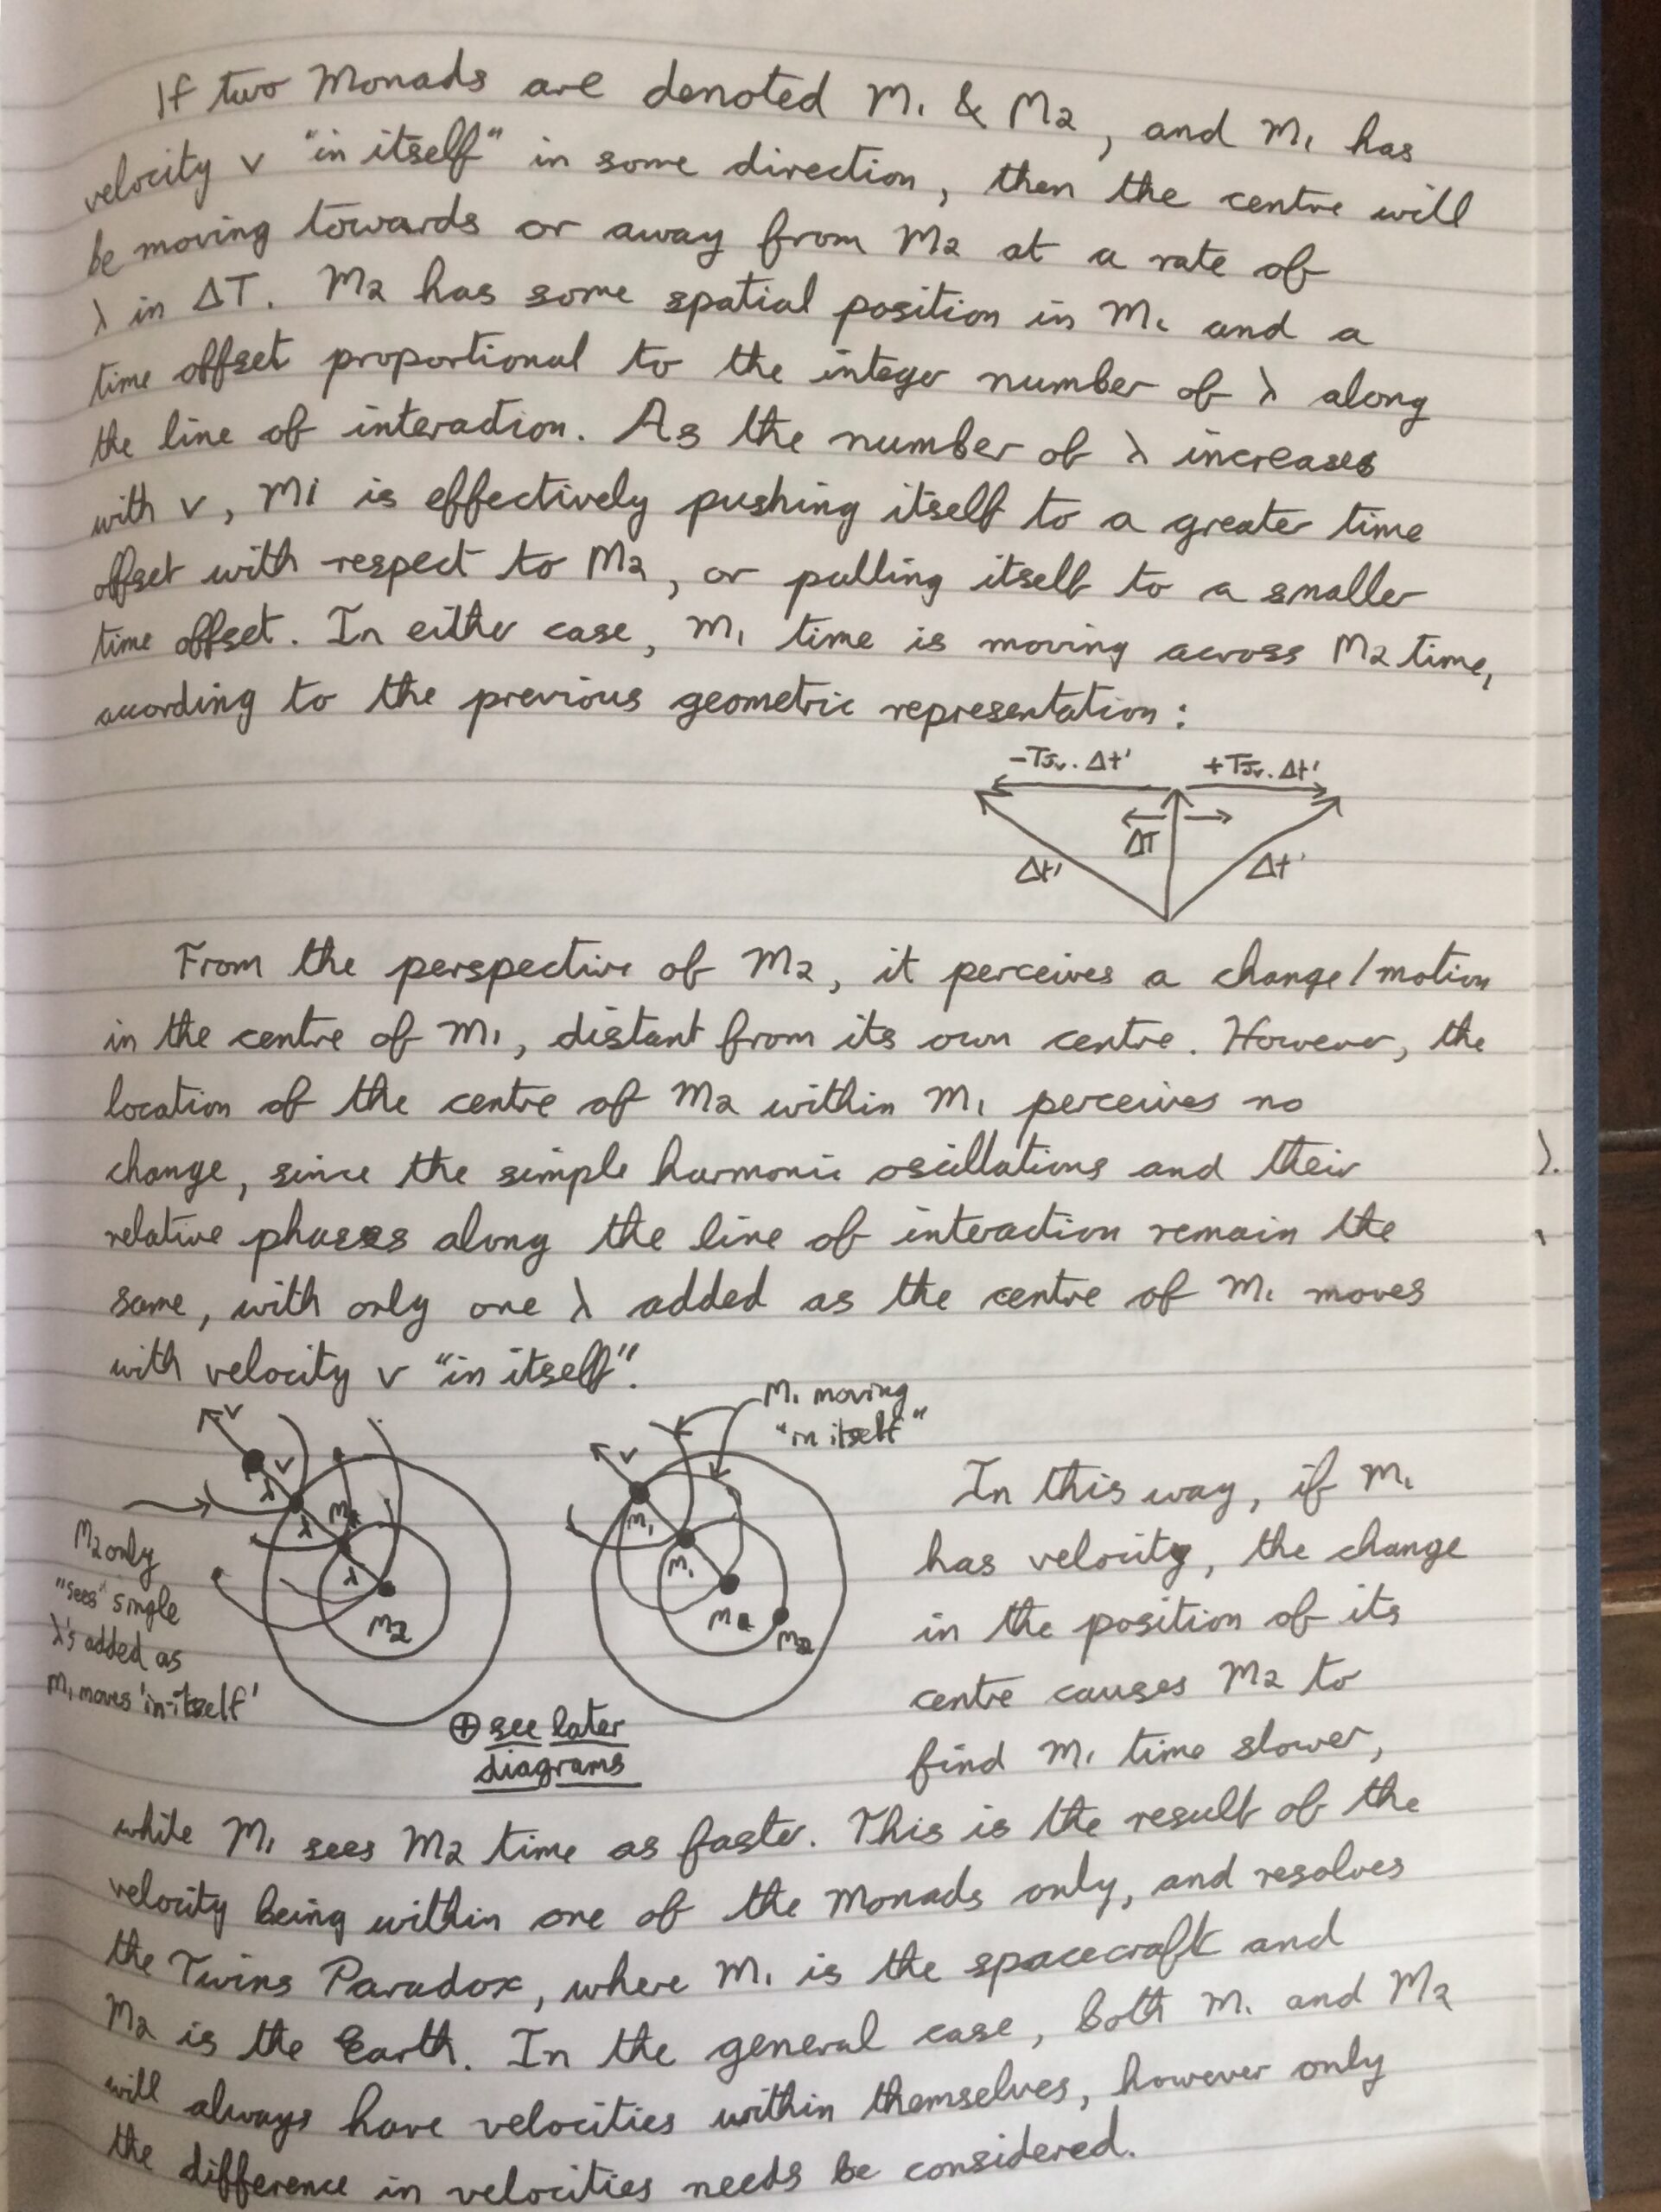 If two Monads are denoted M₁ & M₂, and M₁ has
velocity v "in itself" in some direction, then the centre will
be moving towards or away from M₂ at a rate of
λ in ΔT. M₂ has some spatial position in M₁ and a
time offset proportional to the integer number of λ along
the line of interaction. As the number of λ increases
with v, M₁ is effectively pushing itself to a greater time
offset with respect to M₂, or pulling itself to a smaller
time offset. In either case, M₁ time is moving across M₂ time,
according to the previous geometric representation:
Δt' +
Δt'
ΔT
Δt' Δt'
From the perspective of M₂, it perceives a change/motion
in the centre of M₁, distant from its own centre. However, the
location of the centre of M₂ within M₁ perceives no
change, since the simple harmonic oscillations and their
relative phases along the line of interaction remain the
same, with only one λ added as the centre of M₁ moves
with velocity v "in itself".
M₁ moving
"in itself"
v
v
λ
λ
λ
M₂
v
M₁
M₁
M₂
M₂
M₂ only
"sees" single
λ's added as
M₁ moves 'in-itself'
⊕ see later
diagrams
In this way, if M₁
has velocity, the change
in the position of its
centre causes M₂ to
find M₁ time slower,
while M₁ sees M₂ time as faster. This is the result of the
velocity being within one of the Monads only, and resolves
the Twins Paradox, where M₁ is the spacecraft and
M₂ is the Earth. In the general case, both M₁ and M₂
will always have velocities within themselves, however only
the difference in velocities needs be considered.